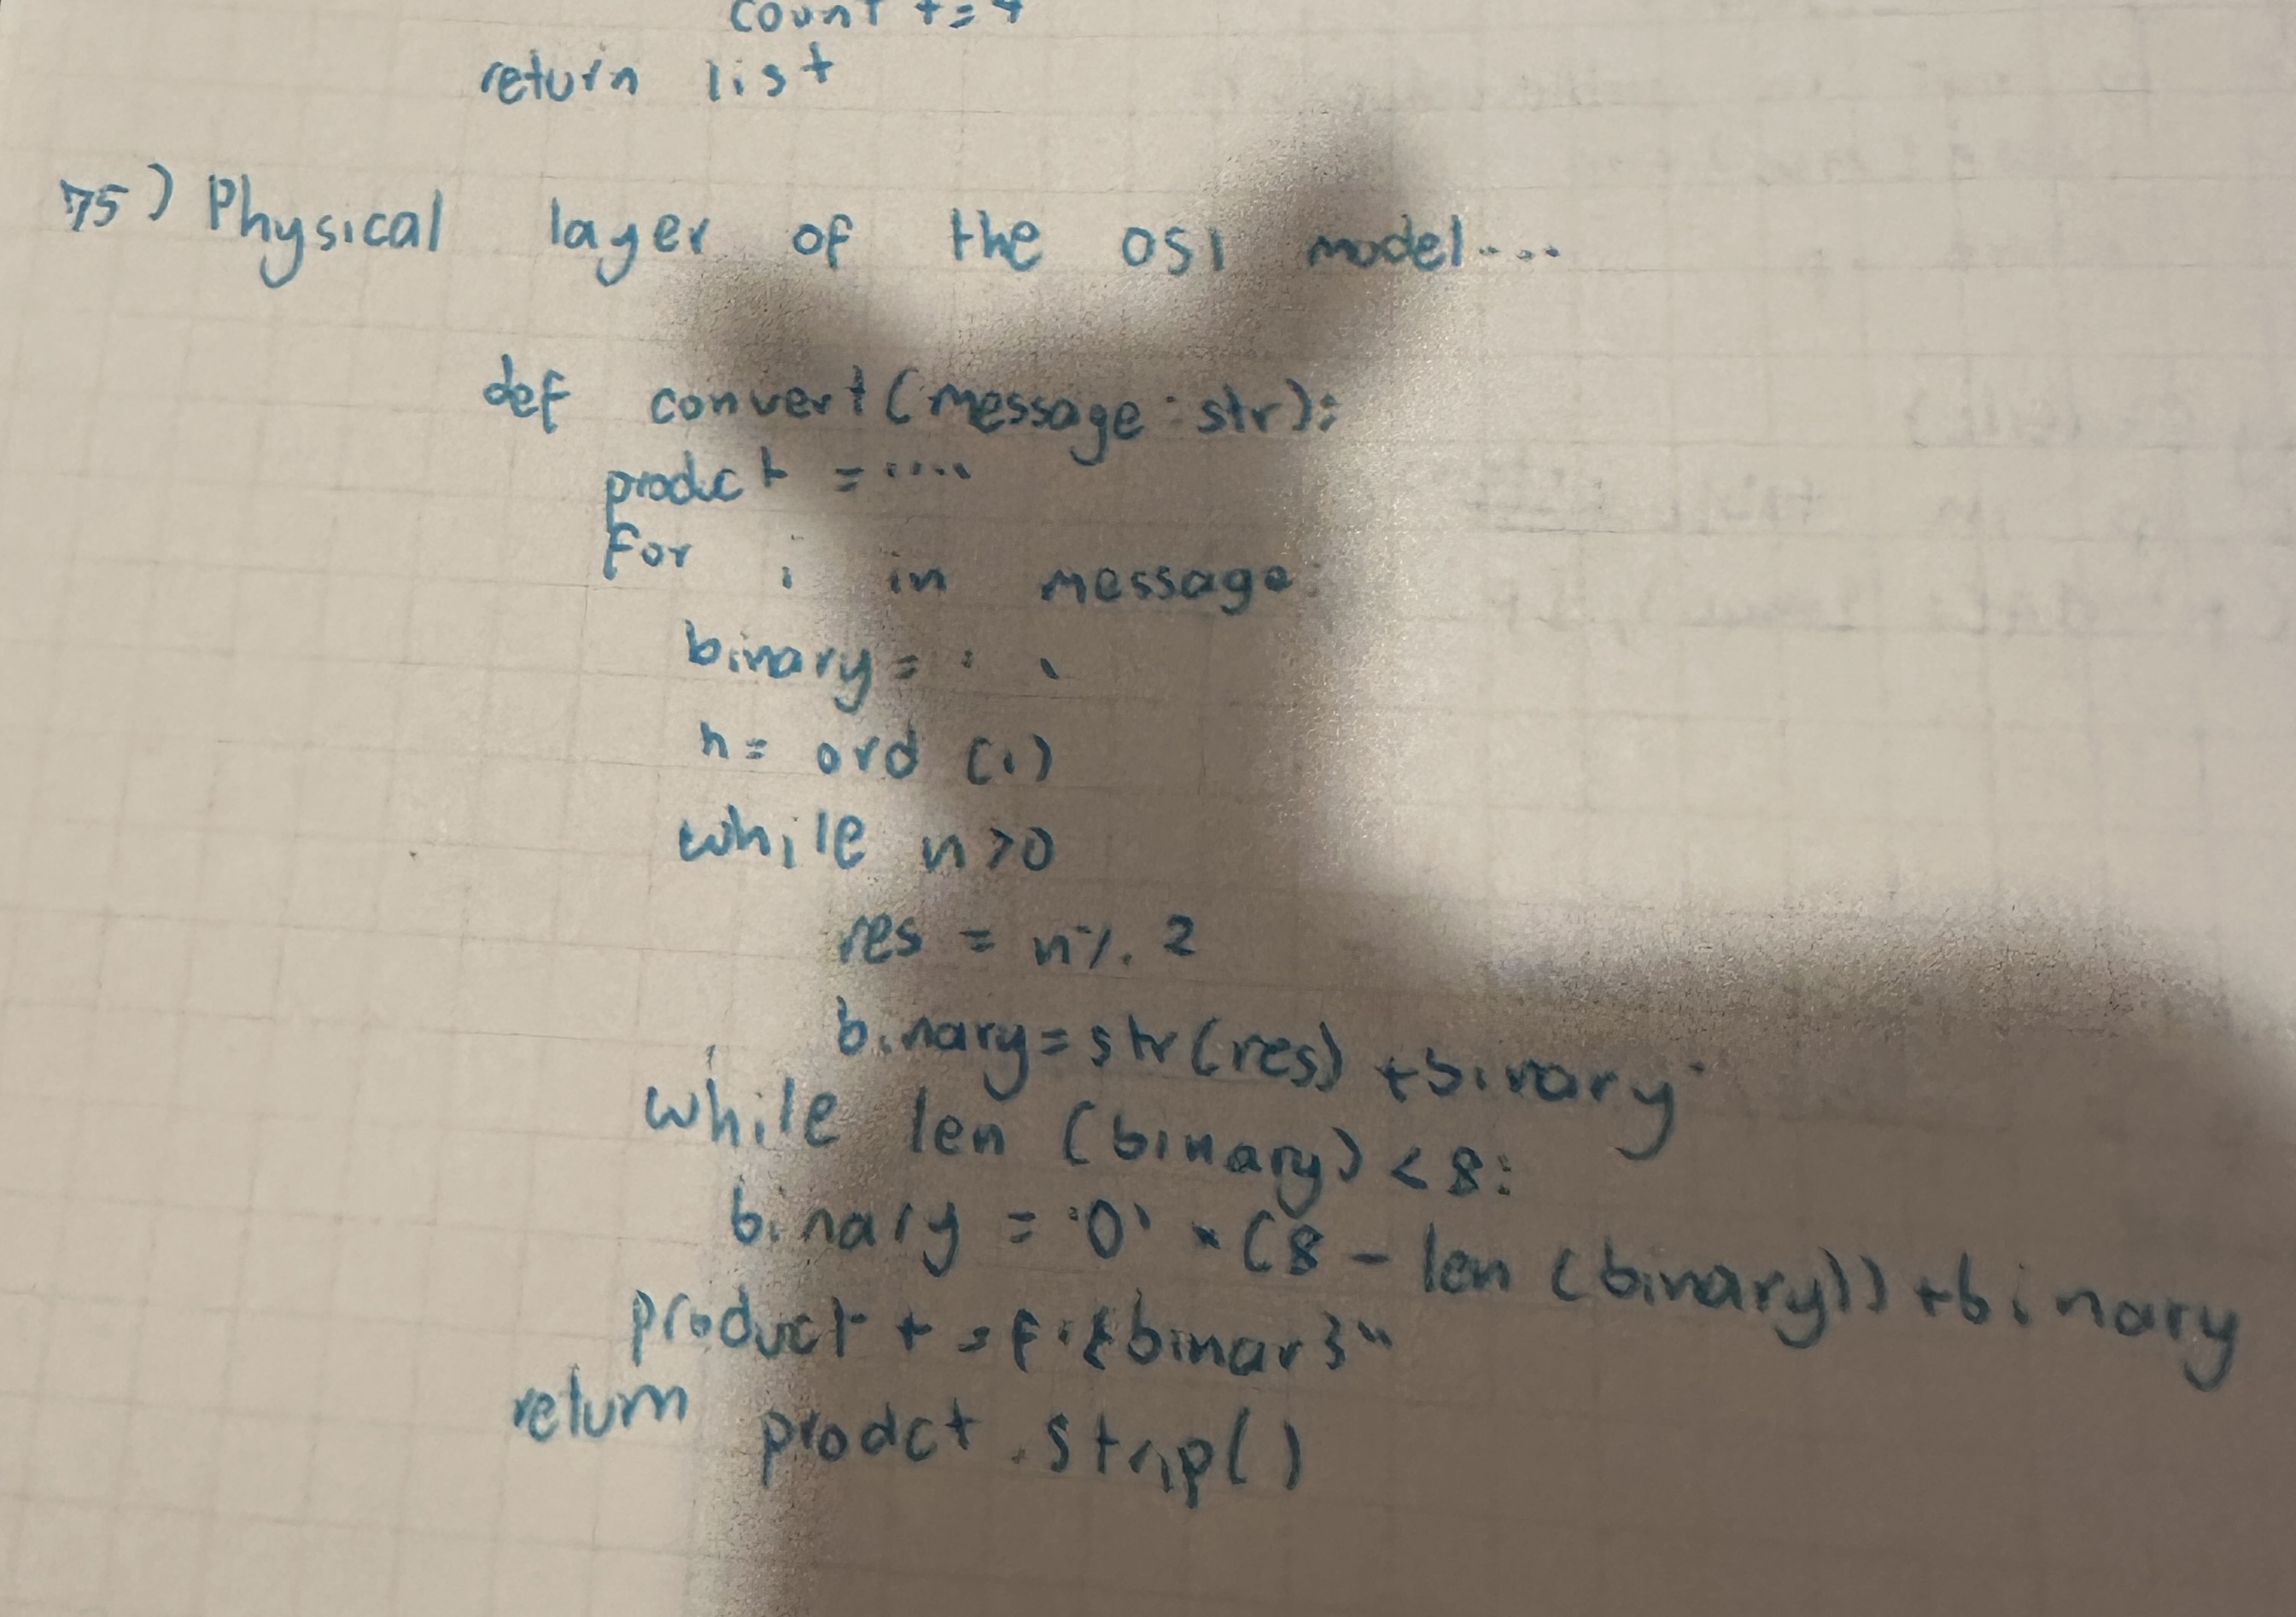 count +=
return list
75) Physical layer of the OSI model....
def convert(message:str):
product = ""
for i in message:
binary= ' '
n= ord (i)
while n>0
res = n% 2
binary=str(res) +binary
while len (binary) <8:
binary = '0' * (8 - len (binary)) +binary
product += f"{binar}"
return prodct .strip()